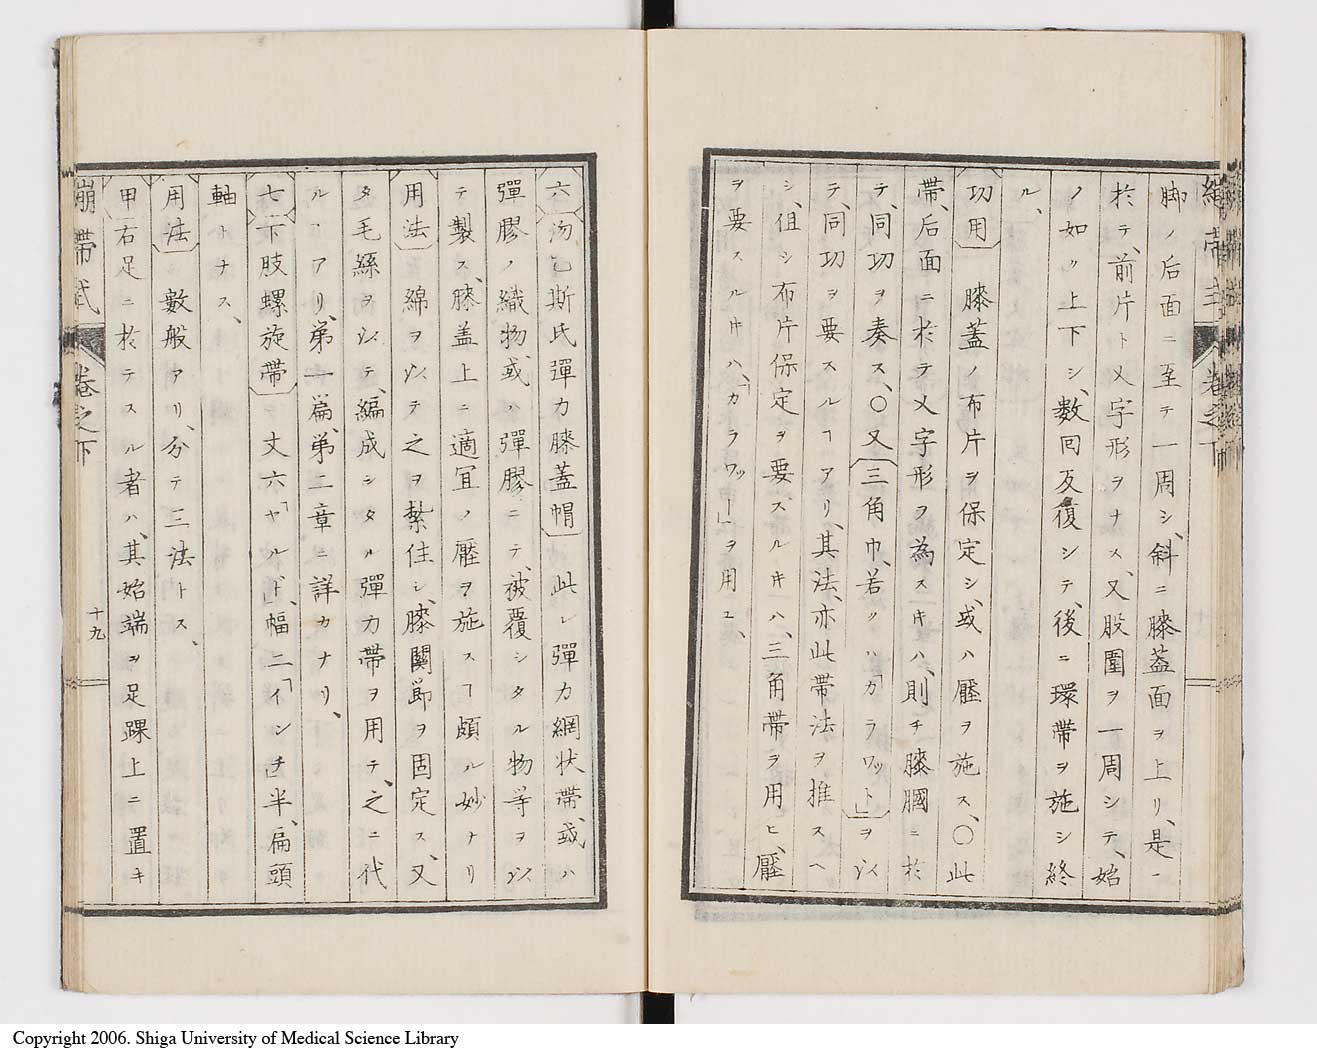 脚ノ后面ニ至テ一周シ、斜ニ膝蓋面ヲ上リ、是ニ
於テ、前片ト乂字形ヲナス、又股圍ヲ一周シテ、始
ノ如ク上下シ、數回反復シテ、後ニ環帯ヲ施シ終
ル、
功用 膝蓋ノ布片ヲ保定シ、或ハ壓ヲ施ス、〇此
帯、后面ニ於テ乂字形ヲ為スキハ、則チ膝膕ニ於
テ、同功ヲ奏ス、〇又三角巾、若クハ「カラワット」ヲ以
テ、同功ヲ要スルヿアリ、其法、亦此帯法ヲ推スヘ
シ、但シ布片保定ヲ要スルキハ、三角帯ヲ用ヒ、壓
ヲ要スルキハ、「カラワットー」ヲ用ユ、
六 汤乙斯氏彈力膝蓋帽 此レ彈力網状帯、或ハ
彈膠ノ織物或ハ彈膠ニテ、被覆シタル物等ヲ以
テ製ス、膝盖上ニ適冝ノ壓ヲ施スヿ頗ル妙ナリ
用法 綿ヲ以テ之ヲ紮住シ、膝關節ヲ固定ス、又
タ毛絲ヲ以テ、編成シタル彈力帯ヲ用テ、之ニ代
ルヿアリ、第一篇、第二章ニ詳カナリ、
七 下肢螺旋帯 丈六「ヤルド」、幅二「インチ」半、扁頭
軸トナス、
用法 數般アリ、分テ三法トス、
甲 右足ニ於テスル者ハ、其始端ヲ足踝上ニ置キ
繃帯式 卷之下 十九
卷之下
Copyright 2006. Shiga University of Medical Science Library